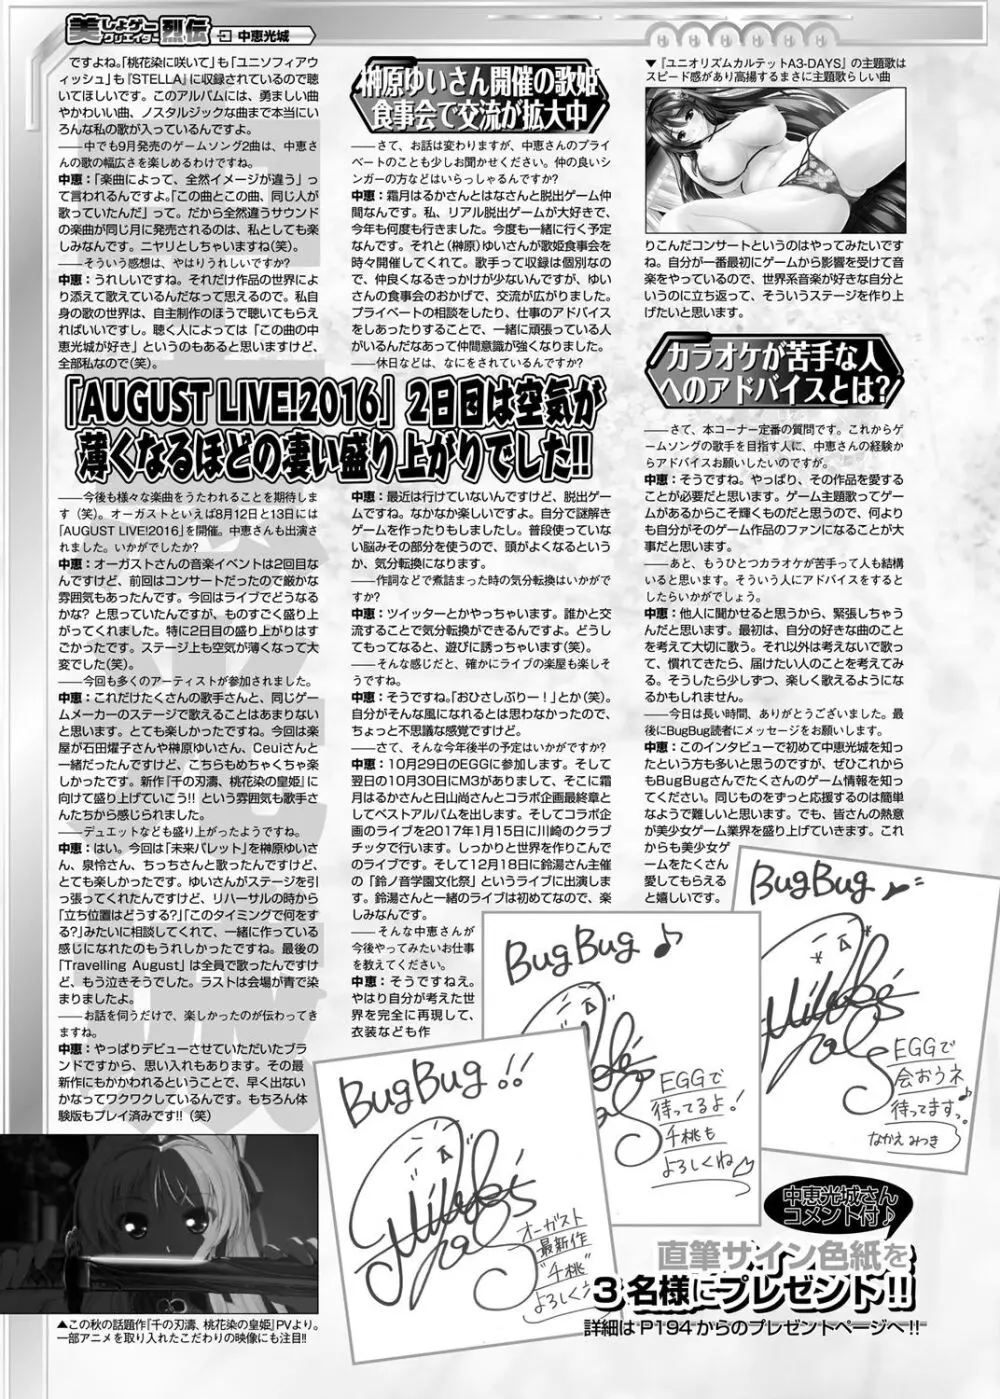 美しょゲークリエイター烈伝 中恵光城
ですよね。「桃花染に咲いて」も「ユニソフィアウ
ィッシュ」も『STELLA』に収録されているので聴
いてほしいです。このアルバムには、勇ましい曲
やかわいい曲、ノスタルジックな曲まで本当にい
ろんな私の歌が入っているんですよ。
――中でも9月発売のゲームソング2曲は、中恵さ
んの歌の幅広さを楽しめるわけですね。
中恵：「楽曲によって、全然イメージが違う」っ
て言われるんですよ。「この曲とこの曲、同じ人が
歌っていたんだ」って。だから全然違うサウンド
の楽曲が同じ月に発売されるのは、私としても楽
しみなんです。ニヤリとしちゃいますね(笑)。
――そういう感想は、やはりうれしいですか?
中恵：うれしいですね。それだけ作品の世界によ
り添えて歌えているんだなって思えるので。私自
身の歌の世界は、自主制作のほうで聴いてもらえ
ればいいですし。聴く人によっては「この曲の中
恵光城が好き」というのもあると思いますけど、
全部私なので(笑)。
「AUGUST LIVE!2016」2日目は空気が
薄くなるほどの凄い盛り上がりでした!!
――今後も様々な楽曲をうたわれることを期待しま
す（笑)。オーガストといえば8月12日と13日には
「AUGUST LIVE!2016」を開催。中恵さんも出演さ
れました。いかがでしたか?
中恵：オーガストさんの音楽イベントは2回目な
んですけど、前回はコンサートだったので厳かな
雰囲気もあったんです。今回はライブでどうなる
かな? と思っていたんですが、ものすごく盛り上
がってくれました。特に2日目の盛り上がりはす
ごかったです。ステージ上も空気が薄くなって大
変でした(笑)。
――今回も多くのアーティストが参加されました。
中恵：これだけたくさんの歌手さんと、同じゲー
ムメーカーのステージで歌えることはあまりない
と思います。とても楽しかったですね。今回は楽
屋が石田燿子さんや榊原ゆいさん、Ceuiさんと
一緒だったんですけど、こちらもめちゃくちゃ楽
しかったです。新作『千の刃濤、桃花染の皇姫』に
向けて盛り上げていこう!! という雰囲気も歌手さ
んたちから感じられました。
――デュエットなども盛り上がったようですね。
中恵：はい。今回は「未来パレット」を榊原ゆいさ
ん、泉怜さん、ちっちさんと歌ったんですけど、
とても楽しかったです。ゆいさんがステージを引
っ張ってくれたんですけど、リハーサルの時から
「立ち位置はどうする?」「このタイミングで何をす
る?」みたいに相談してくれて、一緒に作っている
感じになれたのもうれしかったですね。最後の
「Travelling August」は全員で歌ったんですけ
ど、もう泣きそうでした。ラストは会場が青で染
まりましたよ。
――お話を伺うだけで、楽しかったのが伝わってき
ますね。
中恵：やっぱりデビューさせていただいたブラ
ンドですから、思い入れもあります。その最
新作にもかかわれるということで、早く出ない
かなってワクワクしているんです。もちろん体
験版もプレイ済みです!!（笑）
▲この秋の話題作『千の刃濤、桃花染の皇姫』PVより。
一部アニメを取り入れたこだわりの映像にも注目!!
榊原ゆいさん開催の歌姫
食事会で交流が拡大中
――さて、お話は変わりますが、中恵さんのプライ
ベートのことも少しお聞かせください。仲の良いシ
ンガーの方などはいらっしゃるんですか?
中恵：霜月はるかさんとはなさんと脱出ゲーム仲
間なんです。私、リアル脱出ゲームが大好きで、
今年も何度も行きました。今度も一緒に行く予定
なんです。それと(榊原)ゆいさんが歌姫食事会を
時々開催してくれて。歌手って収録は個別なの
で、仲良くなるきっかけが少ないんですが、ゆい
さんの食事会のおかげで、交流が広がりました。
プライベートの相談をしたり、仕事のアドバイス
をしあったりすることで、一緒に頑張っている人
がいるんだなあって仲間意識が強くなりました。
――休日などは、なにをされているんですか?
中恵：最近は行けていないんですけど、脱出ゲー
ムですね。なかなか楽しいですよ。自分で謎解き
ゲームを作ったりもしましたし。普段使っていな
い脳みその部分を使うので、頭がよくなるという
か、気分転換になります。
――作詞などで煮詰まった時の気分転換はいかがで
すか?
中恵：ツイッターとかやっちゃいます。誰かと交
流することで気分転換ができるんですよ。どうし
てもってなると、遊びに誘っちゃいます(笑)
――そんな感じだと、確かにライブの楽屋も楽しそ
うですね。
中恵：そうですね。「おひさしぶりー！」とか(笑)。
自分がそんな風になれるとは思わなかったので、
ちょっと不思議な感覚ですけど。
――さて、そんな今年後半の予定はいかがですか?
中恵：10月29日のEGGに参加します。そして
翌日の10月30日にM3がありまして、そこに霜
月はるかさんと日山尚さんとコラボ企画最終章とし
てベストアルバムを出します。そしてコラボ企
画のライブを2017年1月15日に川崎のクラブ
チッタで行います。しっかりと世界を作りこんで
のライブです。そして12月18日に鈴湯さん主催
の「鈴ノ音学園文化祭」というライブに出演しま
す。鈴湯さんと一緒のライブは初めてなので、楽
しみなんです。
――そんな中恵さんが
今後やってみたいお仕事
を教えてください。
中恵：そうですねえ。
やはり自分が考えた世
界を完全に再現して、
衣装なども作
▼『ユニオリズムカルテットA3-DAYS』の主題歌は
スピード感があり高揚するまさに主題歌らしい曲
りこんだコンサートというのはやってみたいです
ね。自分が一番最初にゲームから影響を受けて音
楽をやっているので、世界系音楽が好きな自分と
いうのに立ち返って、そういうステージを作り上
げたいと思います。
カラオケが苦手な人
へのアドバイスとは?
――さて、本コーナー定番の質問です。これからゲ
ームソングの歌手を目指す人に、中恵さんの経験か
らアドバイスお願いしたいのですが。
中恵：そうですね。やっぱり、その作品を愛する
ことが必要だと思います。ゲーム主題歌ってゲー
ムがあるからこそ輝くものだと思うので、何より
も自分がそのゲーム作品のファンになることが大
事だと思います。
――あと、もうひとつカラオケが苦手って人も結構
いると思います。そういう人にアドバイスをすると
したらいかがでしょう。
中恵：他人に聞かせると思うから、緊張しちゃう
んだと思います。最初は、自分の好きな曲のこと
を考えて大切に歌う。それ以外は考えないで歌っ
て、慣れてきたら、届けたい人のことを考えてみ
る。そうしたら少しずつ、楽しく歌えるようにな
るかもしれません。
――今日は長い時間、ありがとうございました。最
後にBugBug読者にメッセージをお願いします。
中恵：このインタビューで初めて中恵光城を知っ
たという方も多いと思うのですが、ぜひこれから
もBugBugさんでたくさんのゲーム情報を知っ
てください。同じものをずっと応援するのは簡単
なようで難しいと思います。でも、皆さんの熱意
が美少女ゲーム業界を盛り上げていきます。これ
からも美少女ゲ
ームをたくさん
愛してもらえる
と嬉しいです。
BugBug!!
オーガスト
最新作
"千桃"
よろしく
BugBug♪
EGGで
待ってるよ!
千桃も
よろしくね♡
BugBug
EGGで
会おうネ
待ってます。♪
なかえみつき
中恵光城さん
コメント付♪
直筆サイン色紙を
3名様にプレゼント!!
詳細はP194からのプレゼントページへ!!